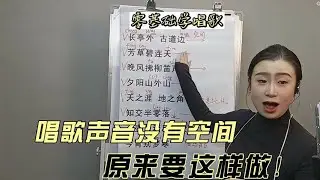 零基础学唱歌
长亭外 古道边
芳草碧连天
晚风拂柳笛
夕阳山外山
天之涯 地之角
知交半零落
唱歌声音没有空间
原来要这样做!